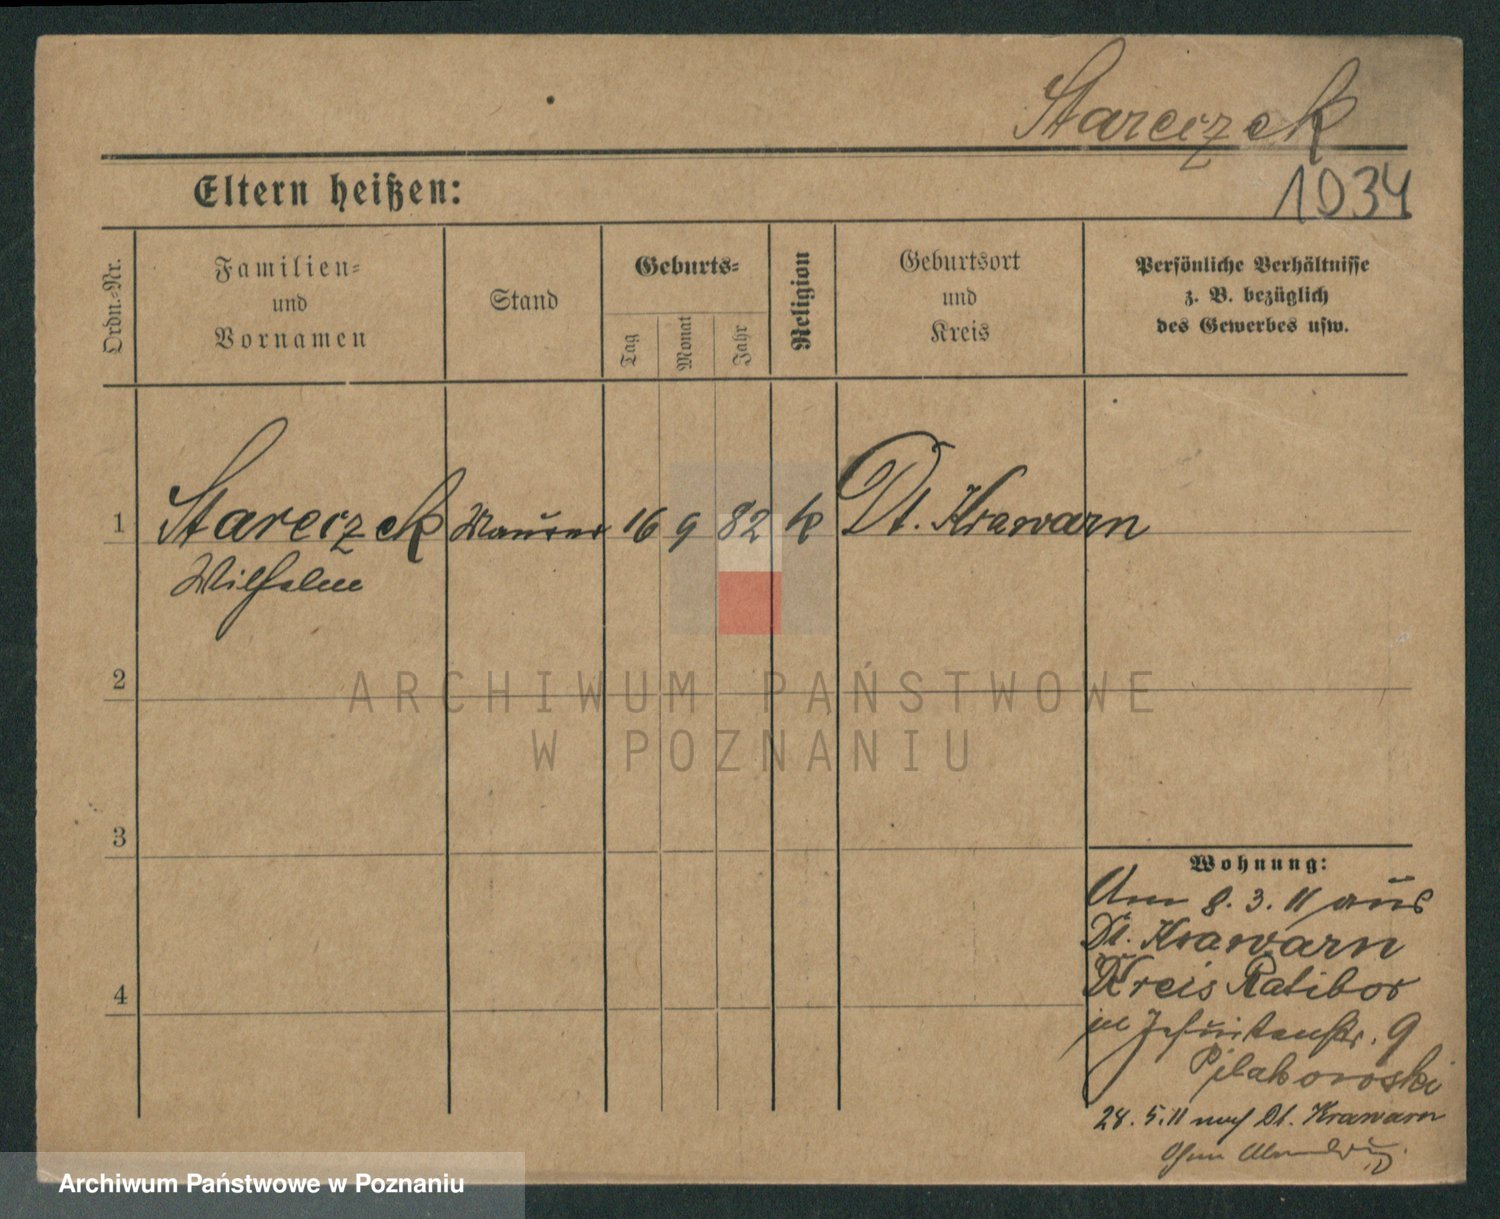 Stareczek
1034
Eltern heißen:
Ordn.-Nr.
Familien-
und
Vornamen
Stand
Geburts-
Tag
Monat
Jahr
Religion
Geburtsort
und
Kreis
Persönliche Verhältnisse
z. B. bezüglich
des Gewerbes usw.
1 Stareczek Maurer 16 9 82 k Dt. Krawarn
Wilhelm
2
3
4
Wohnung:
Am 8. 3. 11 aus
Dt. Krawarn
Kreis Ratibor
in Jesuitenstr. 9
28. 5. 11 nach Dt. Krawarn
Ohne
ARCHIWUM PAŃSTWOWE
W POZNANIU
Archiwum Państwowe w Poznaniu